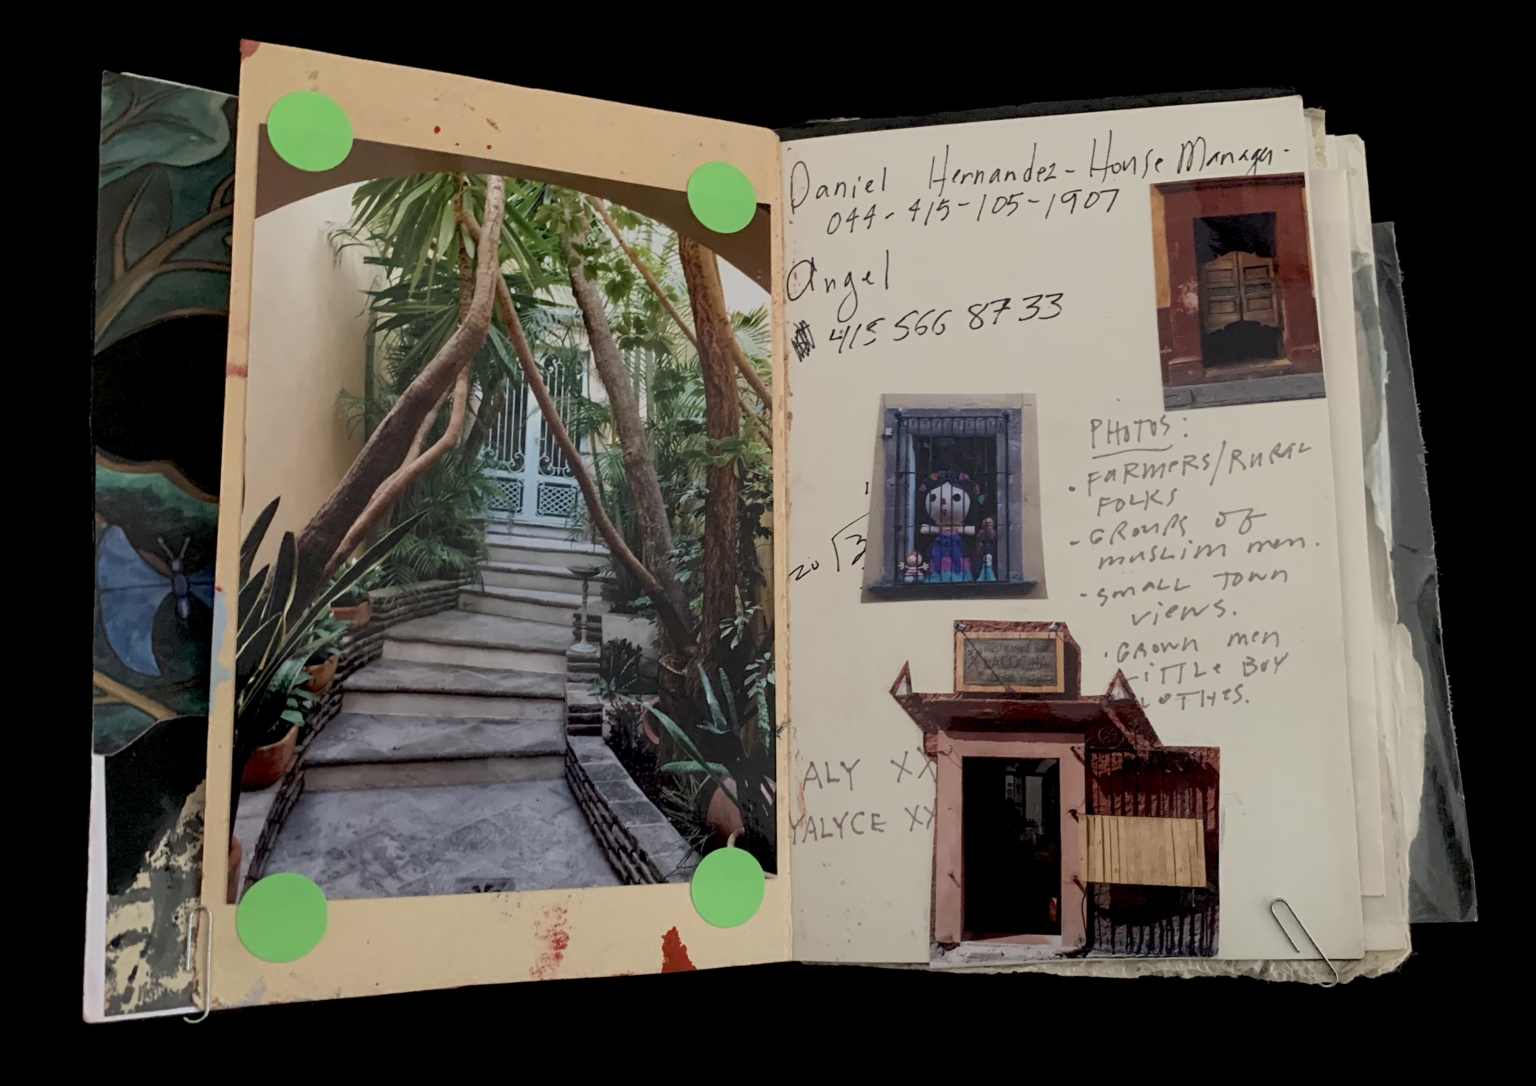 Daniel Hernandez - House Manager -
044-415-105-1907
Angel
415 566 8733
PHOTOS:
• FARMERS/RURAL
FOLKS
- GROUPS OF
muslim men.
- small TOWN
views.
• GROWN men
LITTLE BOY
LOTHES.
20
LACOCINA
ALY XX
YALYCE XX